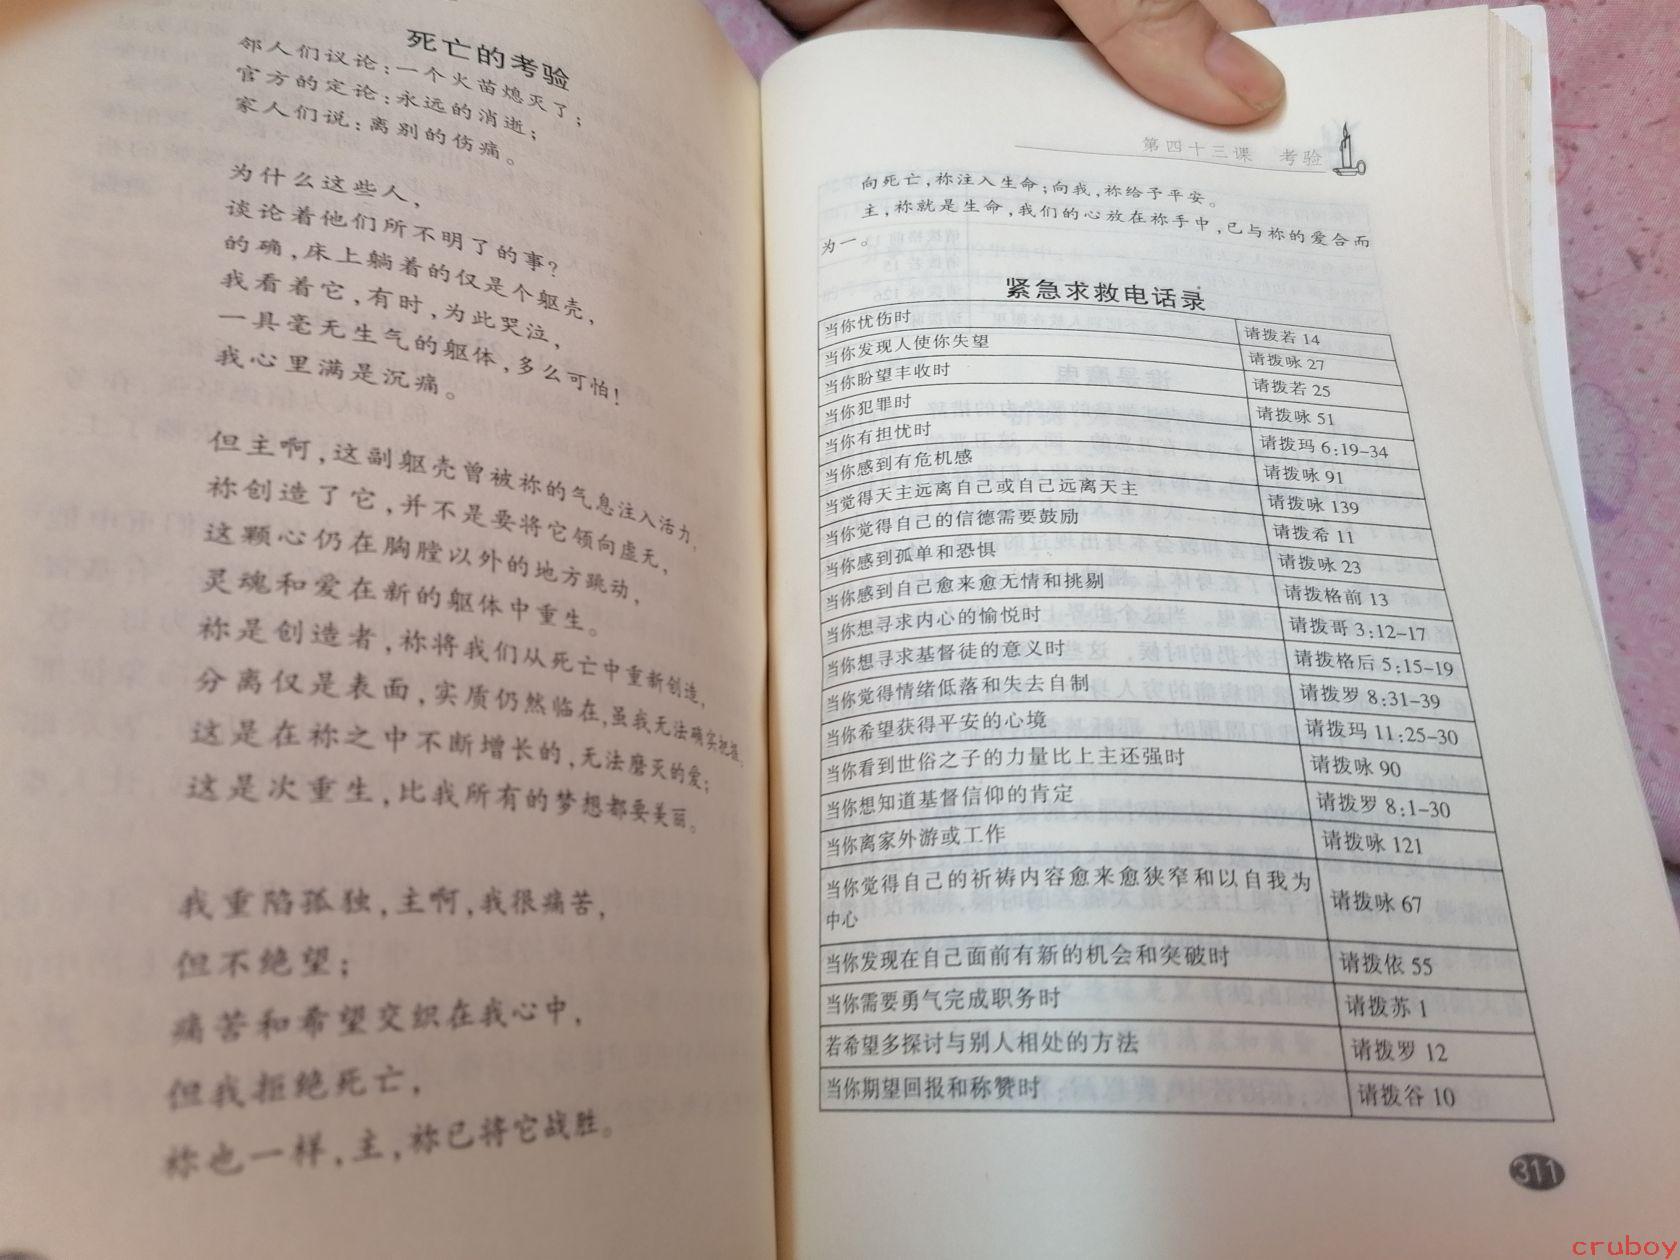 死亡的考验
邻人们议论：一个火苗熄灭了；
官方的定论：永远的消逝；
家人们说：离别的伤痛。
为什么这些人，
谈论着他们所不明了的事？
的确，床上躺着的仅是个躯壳，
我看着它，有时，为此哭泣，
一具毫无生气的躯体，多么可怕！
我心里满是沉痛。
但主啊，这副躯壳曾被祢的气息注入活力，
祢创造了它，并不是要将它领向虚无，
这颗心仍在胸膛以外的地方跳动，
灵魂和爱在新的躯体中重生。
祢是创造者，祢将我们从死亡中重新创造，
分离仅是表面，实质仍然临在，虽我无法确实把握。
这是在祢之中不断增长的，无法磨灭的爱；
这是次重生，比我所有的梦想都要美丽。
我重陷孤独，主啊，我很痛苦，
但不绝望；
痛苦和希望交织在我心中，
但我拒绝死亡，
祢也一样，主，祢已将它战胜。
第四十三课 考验
向死亡，祢注入生命；向我，祢给予平安。
主，祢就是生命，我们的心放在祢手中，已与祢的爱合而
为一。
紧急求救电话录
当你忧伤时 请拨若 14
当你发现人使你失望 请拨咏 27
当你盼望丰收时 请拨若 25
当你犯罪时 请拨咏 51
当你有担忧时 请拨玛 6:19-34
当你感到有危机感 请拨咏 91
当觉得天主远离自己或自己远离天主 请拨咏 139
当你觉得自己的信德需要鼓励 请拨希 11
当你感到孤单和恐惧 请拨咏 23
当你感到自己愈来愈无情和挑剔 请拨格前 13
当你想寻求内心的愉悦时 请拨哥 3:12-17
当你想寻求基督徒的意义时 请拨格后 5:15-19
当你觉得情绪低落和失去自制 请拨罗 8:31-39
当你希望获得平安的心境 请拨玛 11:25-30
当你看到世俗之子的力量比上主还强时 请拨咏 90
当你想知道基督信仰的肯定 请拨罗 8:1-30
当你离家外游或工作 请拨咏 121
当你觉得自己的祈祷内容愈来愈狭窄和以自我为
中心 请拨咏 67
当你发现在自己面前有新的机会和突破时 请拨依 55
当你需要勇气完成职务时 请拨苏 1
若希望多探讨与别人相处的方法 请拨罗 12
当你期望回报和称赞时 请拨谷 10
311
cruboy